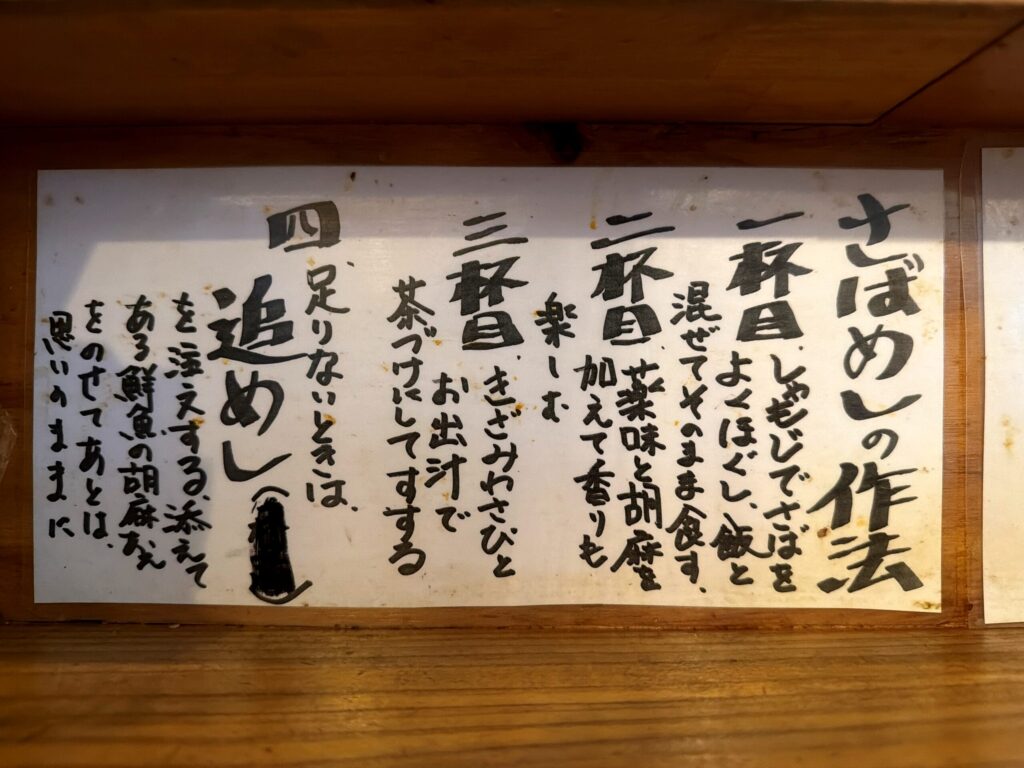 さばめしの作法
一杯目、しゃもじでさばを
よくほぐし、飯と
混ぜてそのまま食す、
二杯目、薬味と胡麻を
加えて香りも
楽しむ
三杯目、きざみわさびと
お出汁で
茶づけにしてすする
四、足りないときは、
追めし(
を注文する、添えて
ある鮮魚の胡麻あえ
をのせてあとは、
思いのままに